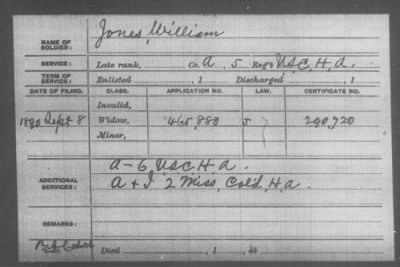 NAME OF SOLDIER: Jones, William
SERVICE: Late rank, Co. A, 5 Reg't U.S.C.H.A.
TERM OF SERVICE: Enlisted , 1 Discharged , 1
DATE OF FILING. CLASS. APPLICATION NO. LAW. CERTIFICATE NO.
Invalid,
1890 Sept 8 Widow, 465,880 290,720
Minor,
ADDITIONAL SERVICES: A-6, U.S.C.H.A.
A + I 2 Miss, Col'd, H.A.
REMARKS:
Died , 1 , at